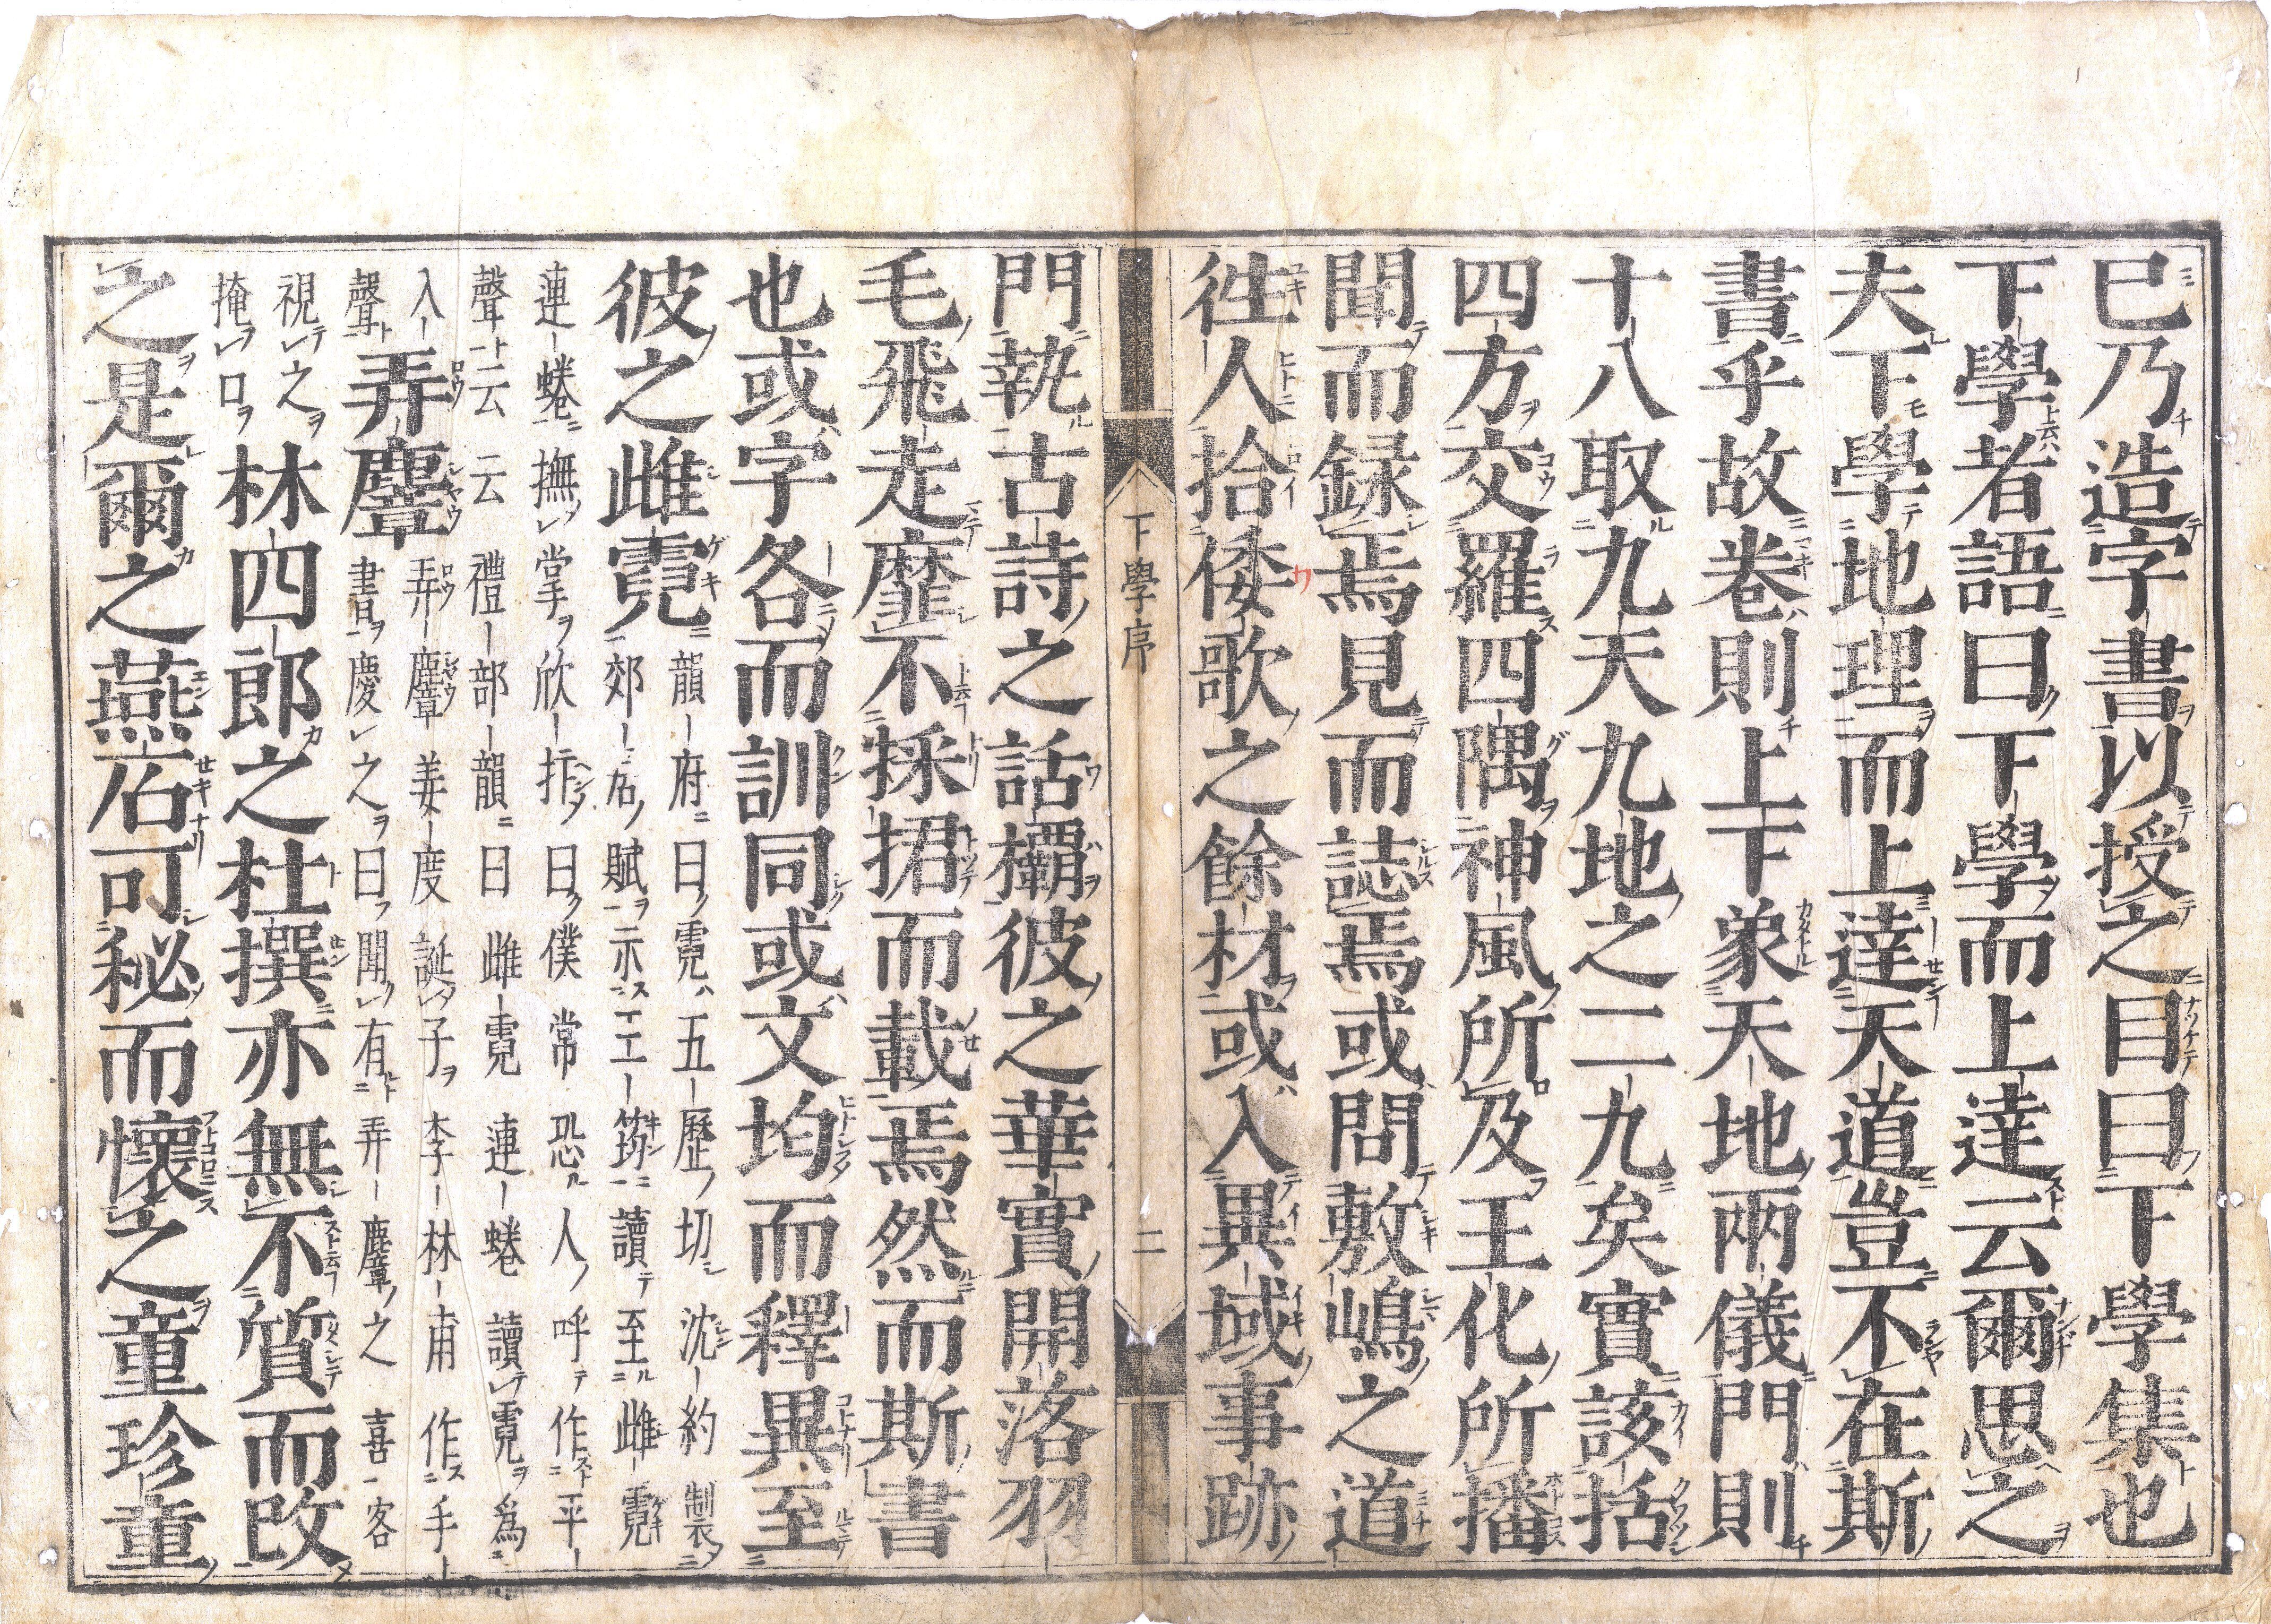 已乃造字書以授之目曰下學集也
下學者語曰下學而上達云爾思之
夫下學地理而上達天道豈不在斯
書乎故卷則上下象天地兩儀門則
十八取九天九地之二九矣實該括
四方交羅四隅神風所及王化所播
聞而録焉見而誌焉或問敷嶋之道
徃人拾倭歌之餘材或入異域事跡
下學序 二
門執古詩之話欛彼之華實開落羽
毛飛走靡不採捃而載焉然而斯書
也或字各而訓同或文均而釋異至
彼之雌霓
韻府曰霓五歷切沈約製
郊居賦示王筠讀至雌霓
連蜷撫掌欣抃曰僕常恐人呼作平
聲云云禮部韻曰雌霓連蜷讀霓爲
入聲
弄麞
弄麞姜度誕子李林甫作手
書慶之曰聞有弄麞之喜客
視之掩口
林四郎之杜撰亦無不質而改
之是爾之燕石可秘而懷之童珍童